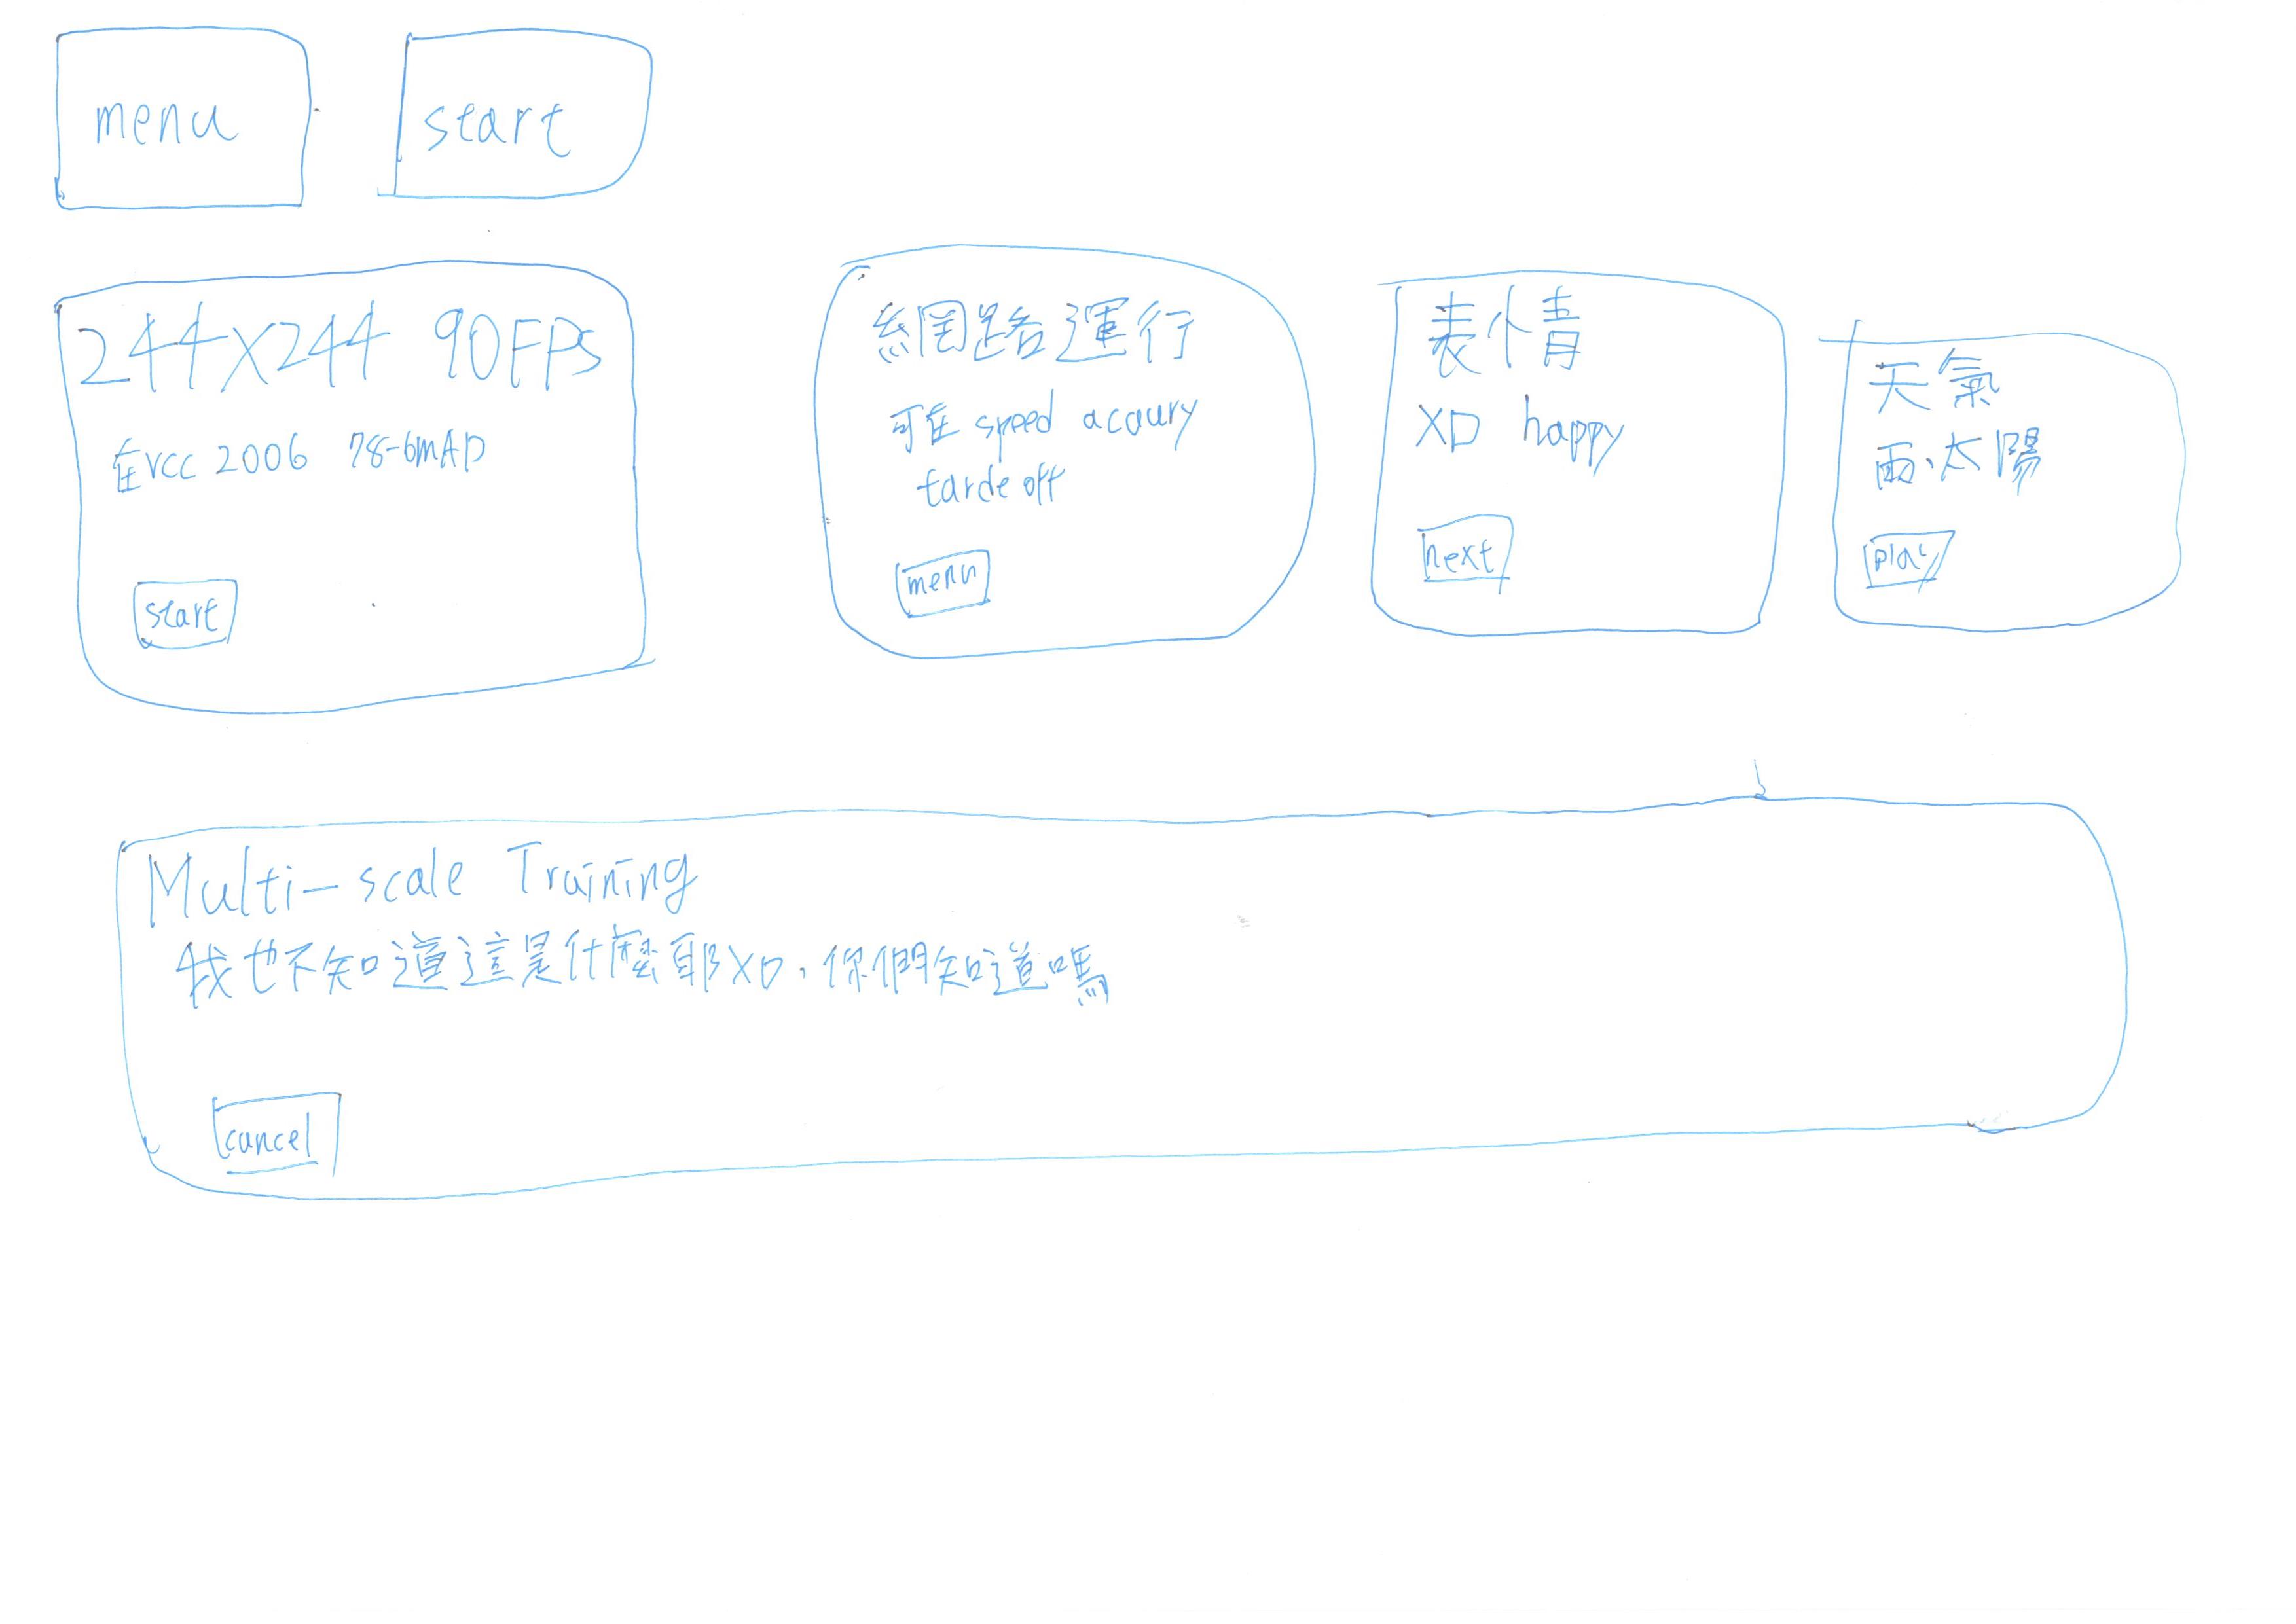 menu
start
244X244 90FPS
在vcc 2006 78-6mAP
start
網路運行
可在 speed acaury
tarde off
menu
表情
XD happy
next
天氣
雨、太陽
play
Multi-scale Training
我也不知道這是什麼耶XD,你們知道嗎
cancel